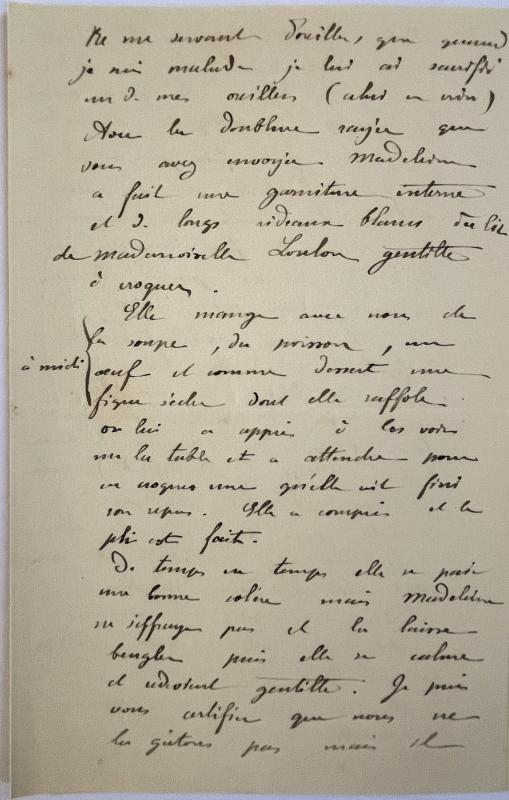 ne me servant d'oreiller, que quand
je suis malade je lui ai sacrifié
un de mes oreillers (celui en crin)
Avec la doublure rayée que
vous avez envoyée Madeleine
a fait une garniture interne
et de longs rideaux blancs du lit
de mademoiselle Loulou gentille
à croquer.
Elle mange avec nous de
la soupe, du poisson, un
à midi œuf et comme dessert une
figue sèche dont elle raffole.
on lui a appris à les voir
sur la table et a attendre pour
en croquer une qu'elle ait fini
son repas. Elle a compris et le
pli est fait.
De temps en temps elle se paie
une bonne colère mais Madeleine
ne s'effraye pas et la laisse
beugler puis elle se calme
et redevient gentille. Je puis
vous certifier que nous ne
la gâtons pas mais il